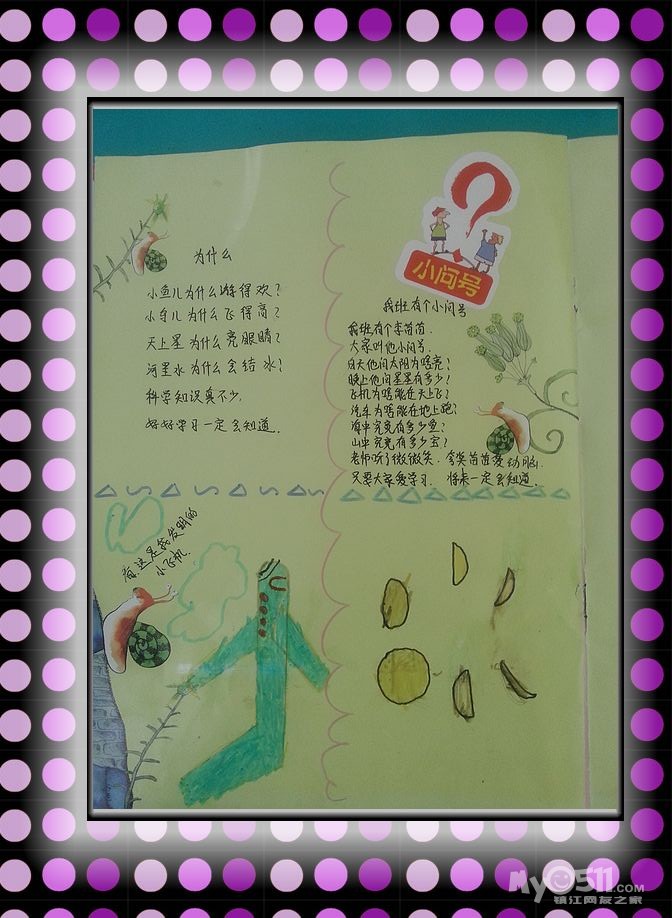 为什么
小鱼儿为什么游得欢？
小鸟儿为什么飞得高？
天上星为什么亮眼睛？
河里水为什么会结冰？
科学知识真不少，
好好学习一定会知道。
小问号
我班有个小问号
我班有个李苗苗，
大家叫他小问号。
白天他问太阳为啥亮？
晚上他问星星有多少？
飞机为啥能在天上飞？
汽车为啥能在地上跑？
海中究竟有多少鱼？
山中究竟有多少宝？
老师听了微微笑，夸奖苗苗爱动脑，
又要大家爱学习，将来一定会知道。
看，这是我发明的
小飞机。
My0511.COM
镇江网友之家